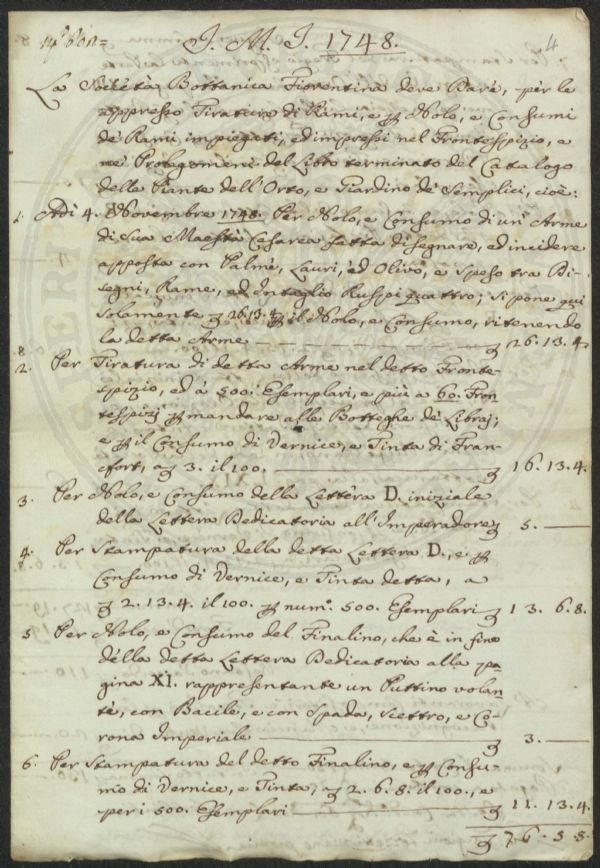 J. M. J. 1748.
4
La Società Bottanica Fiorentina deve Dare, per le
appresso Tirature di Rami, e Nolo, e Consumi
de Rami impiegati, ed impressi nel Frontespizio, e
ne Prolegomeni del Libro terminato del Catalogo
delle Piante dell'Orto, e Giardino de Semplici, cioè:
1. Adì 4. Novembre 1748. Per Nolo, e Consumo di un'Arme
di Sua Maestà Cesarea fatta disegnare, ed incidere
apposta con Palme, Lauri, ed Olivo, e speso tra Di-
segni, Rame, ed Intaglio Ruspi quattro; si pone qui
solamente 26.13.4 il Nolo, e Consumo, ritenendo
la detta Arme 26.13.4.
2. Per Tiratura di detta Arme nel detto Fronte-
spizio, ed à 500. Esemplari, e più a 60. Fron
tespizj mandare alle Botteghe de Libraj;
e il Consumo di Vernice, e Tinta di Fran-
cfort, a 3. il 100. 16.13.4.
3. Per Nolo, e Consumo della Lettera D. iniziale
della Lettera Dedicatoria all'Imperadore 5. —
4. Per Stampatura della detta Lettera D., e
Consumo di Vernice, e Tinta detta, a
2.13.4. il 100. num.° 500. Esemplari 13.6.8.
5 Per Nolo, e Consumo del Finalino, che è in fine
della detta Lettera Dedicatoria alla pa
gina XI. rappresentante un Puttino volan
te, con Bacile, e con Spada, Scettro, e Co-
rona Imperiale 3. —
6. Per Stampatura del detto Finalino, e Consu-
mo di Vernice, e Tinta, a 2.6.8. il 100., e
per i 500. Esemplari 11.13.4.